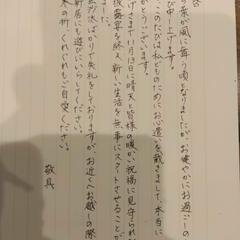 の葉が風に舞う頃となりましたが、お健やかにお過ごしの
び申し上げます。
このたびは私どものためにお心遣いを戴きまして、本当に
がとうございます。
げさまで11月13日に晴天と皆様の暖かい祝福に見守られなが
披露宴を終え、新しい生活を無事にスタートさせることが
ました。
面汰ばかりで失礼をしておりますが、お近くへお越しの際
新居にも遊びにいらしてください。
末の折、くれぐれもご自愛ください。
敬具